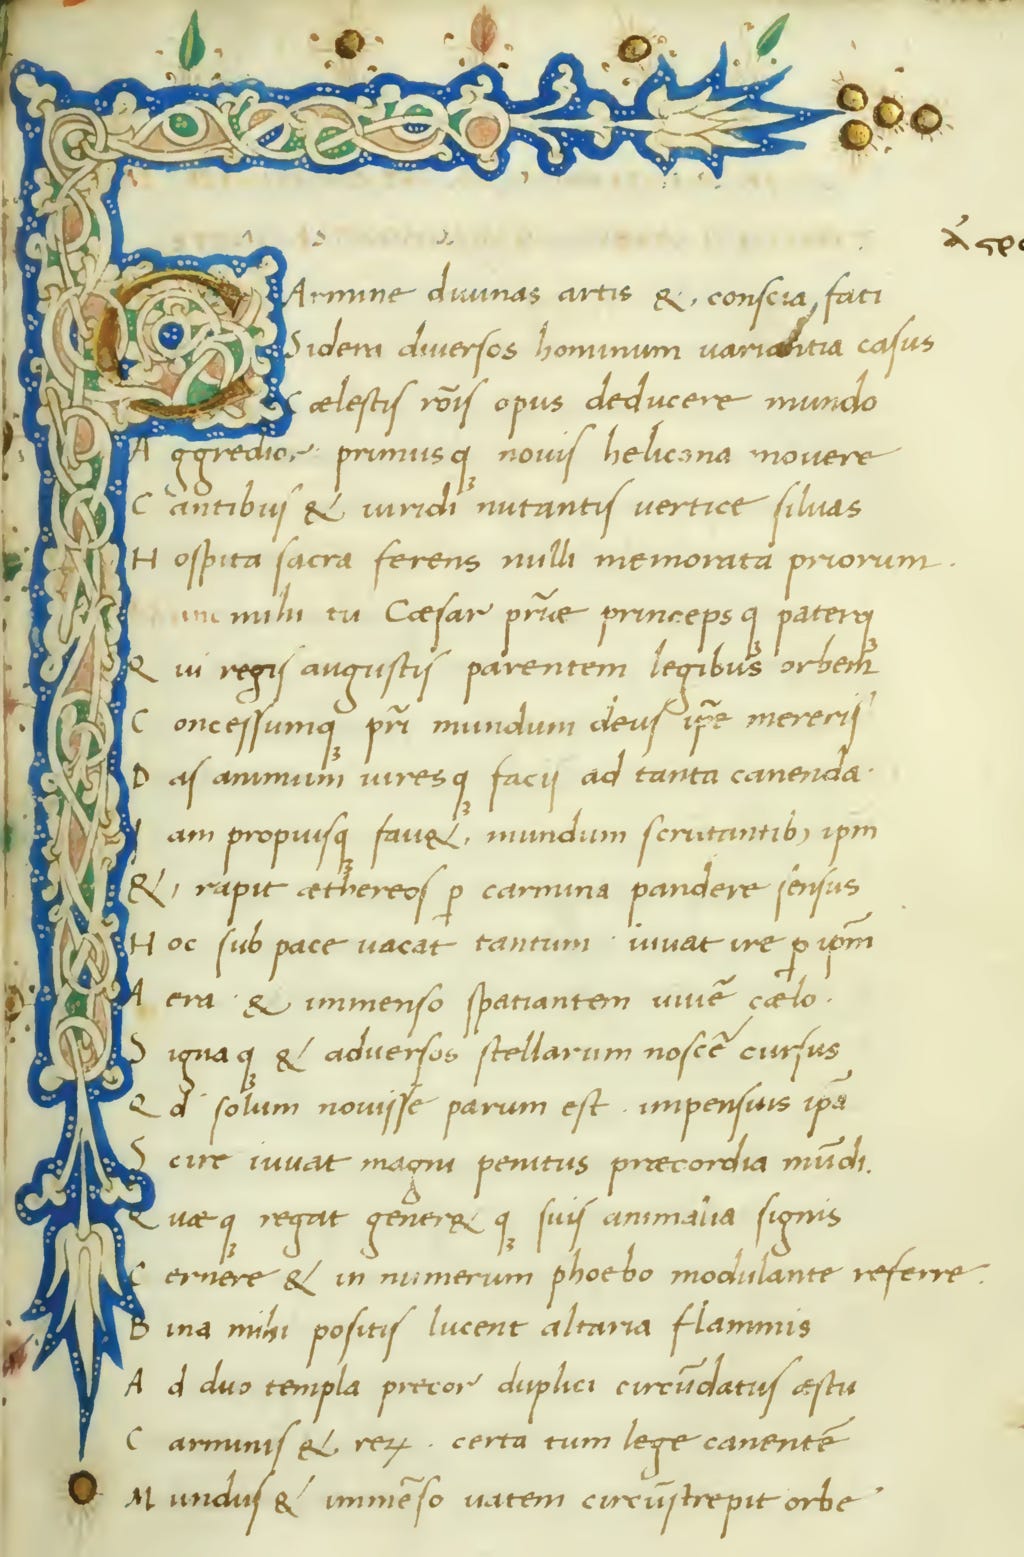 CArmine diuinas artis &, conscia fati
Sidera diuersos hominum uariantia casus
Cælestis rōis opus deducere mundo
Aggredior primusq3 nouis helicona mouere
Cantibus & uiridi nutantis uertice siluas
Hospita sacra ferens nulli memorata priorum.
mihi tu Cæsar pr̄iæ princepsq3 paterq3
Qui regis augustis parentem legibus orbem
Concessumq3 pr̄i mundum deus ip̄e mereris
Das animum uiresq3 facis ad tanta canenda.
Iam propiusq3 fau&, mundum scrutantib3 ipm̄
&, rapit æthereos ꝑ carmina pandere sensus
Hoc sub pace uacat tantum. iuuat ire ꝑ ipm̄
Aera & immenso spatiantem uiuē cælo.
Signaq3 & aduersos stellarum noscē cursus
Qd solum nouisse parum est. impensius ip̄a
Scire iuuat magni penitus præcordia mūdi.
Quæq3 regat gener&q3 suis animalia signis
Cernere & in numerum phoebo modulante referre.
Bina mihi positis lucent altaria flammis
Ad duo templa precor duplici circūdatus æstu
Carminis & reꝝ. certa cum lege canentē
Mundus & immēso uatem circūstrepit orbe